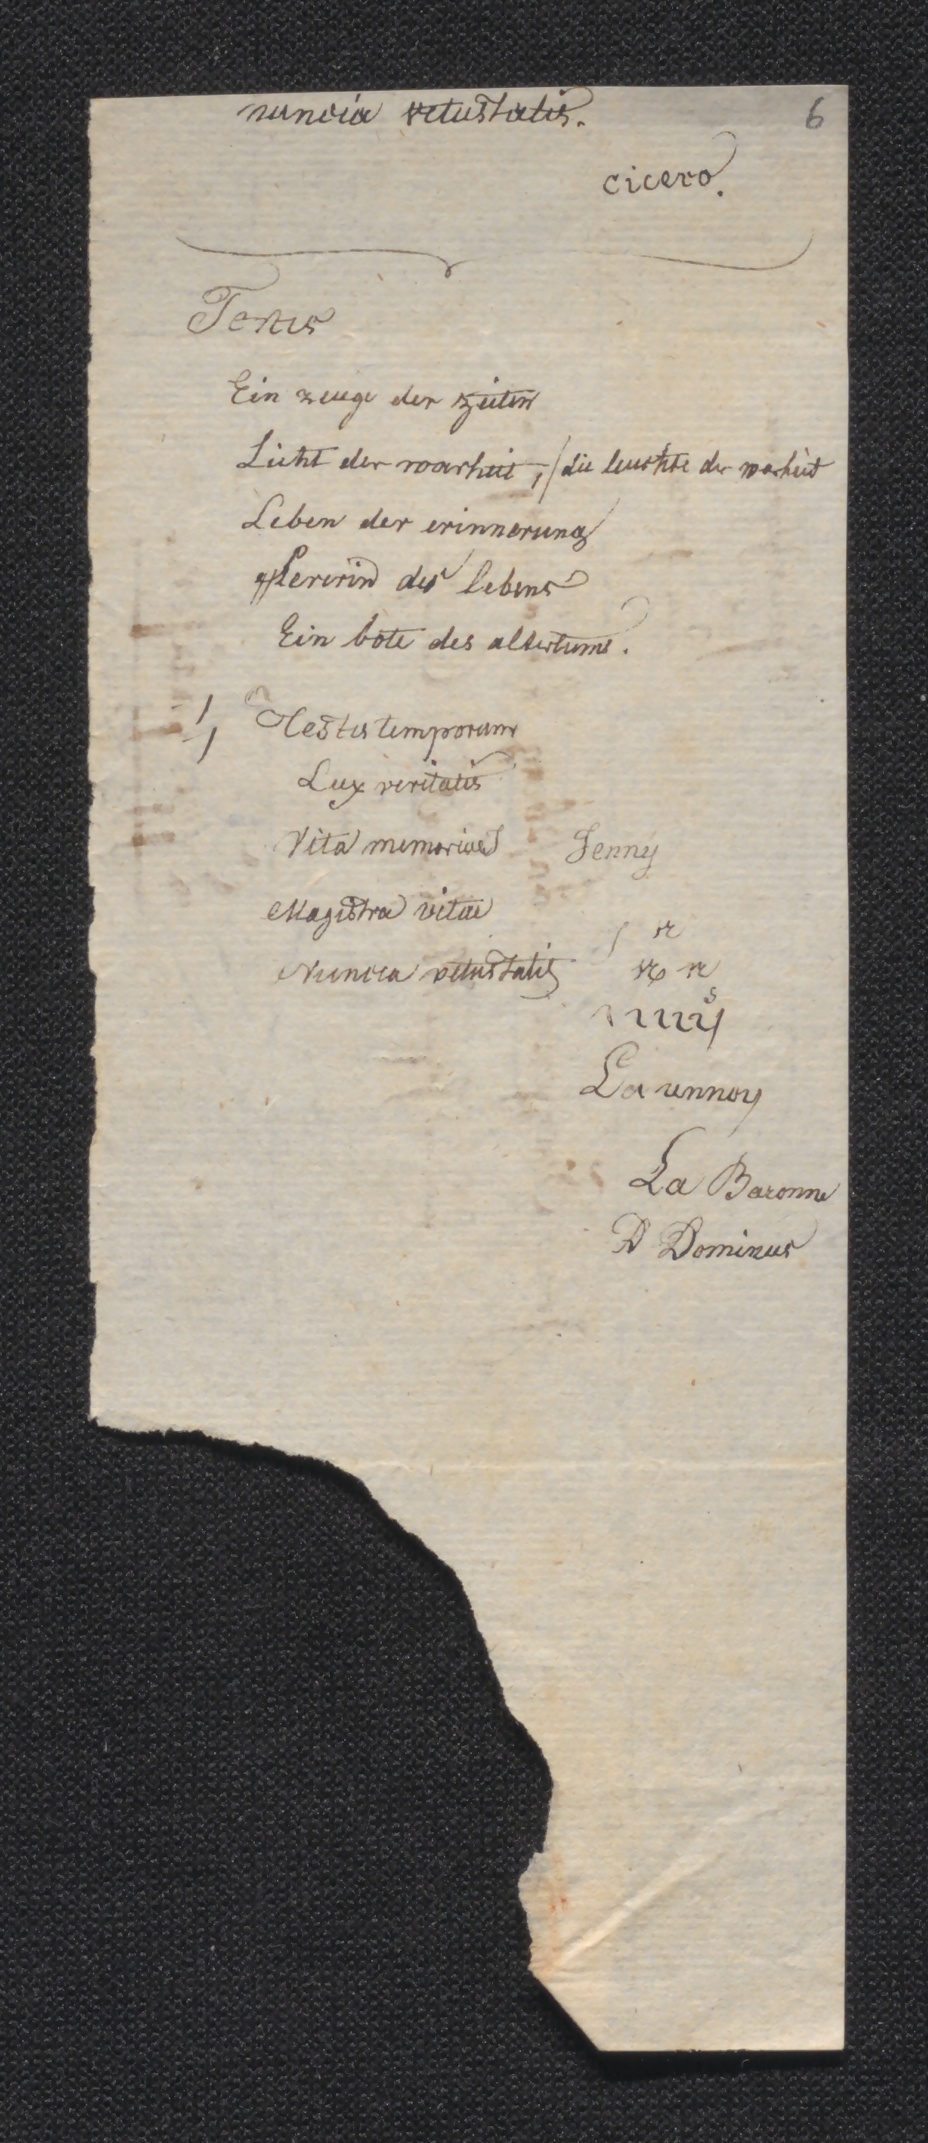 nuncia vetustatis. 6
cicero.
Testis
Ein zeuge der zeiten
Licht der warheit, / die leuchte der warheit
Leben der erinnerung
Lererin des lebens
Ein bote des altertums.
Testis temporum
Lux veritatis
Vita memoriae Jenny
Magistra vitae
Nuncia vetustatis
Launnoy
La Baronne
D Dominus